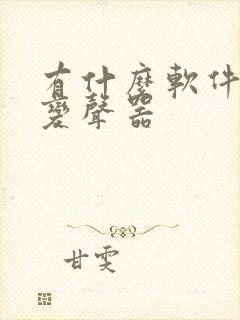 有什麼軟件
變聲器
甘雯